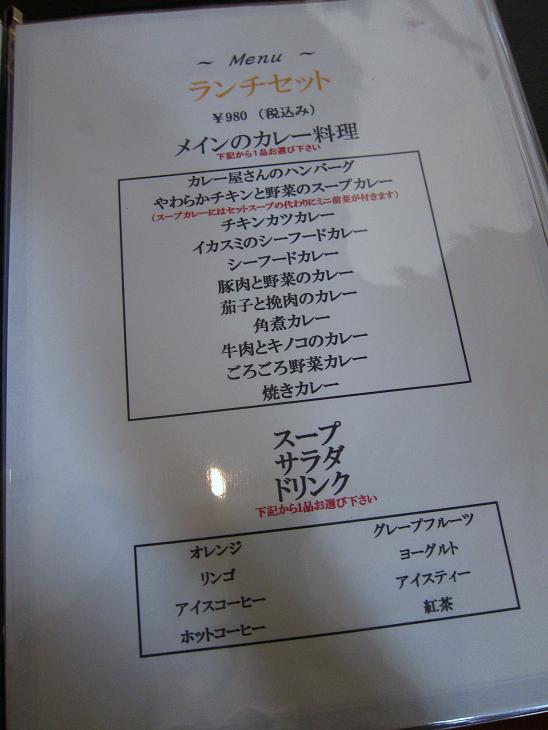 ～ Menu ～
ランチセット
￥980 （税込み）
メインのカレー料理
下記から1品お選び下さい
カレー屋さんのハンバーグ
やわらかチキンと野菜のスープカレー
（スープカレーにはセットスープの代わりにミニ前菜が付きます）
チキンカツカレー
イカスミのシーフードカレー
シーフードカレー
豚肉と野菜のカレー
茄子と挽肉のカレー
角煮カレー
牛肉とキノコのカレー
ごろごろ野菜カレー
焼きカレー
スープ
サラダ
ドリンク
下記から1品お選び下さい
オレンジ グレープフルーツ
リンゴ ヨーグルト
アイスコーヒー アイスティー
ホットコーヒー 紅茶